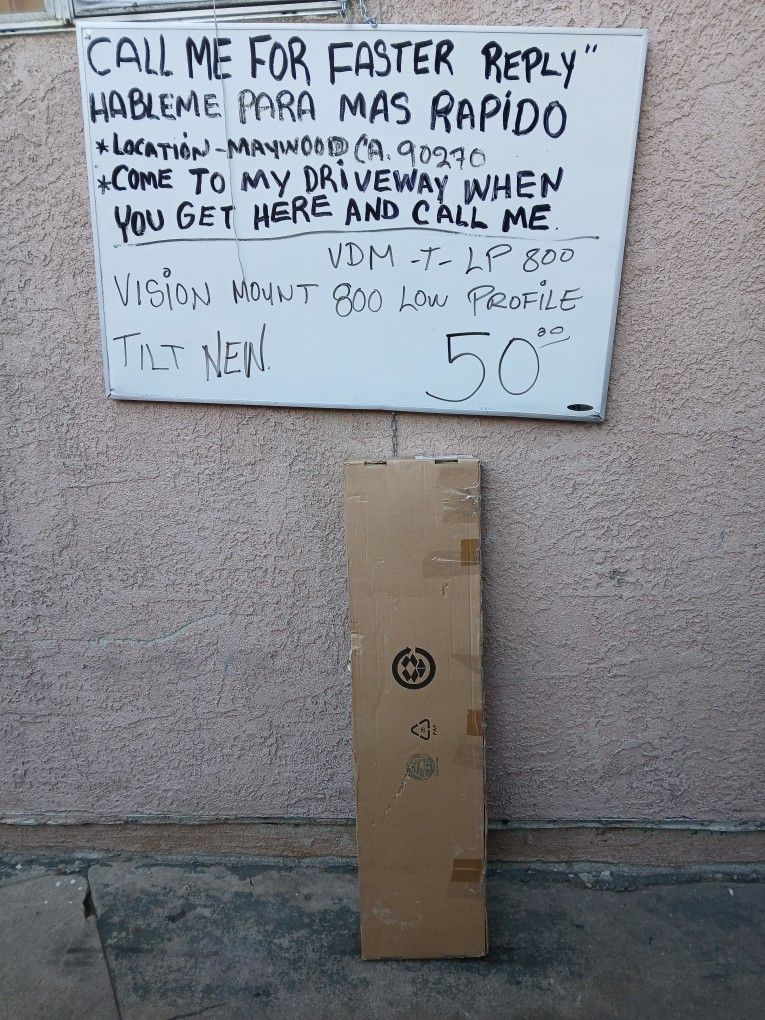 CALL ME FOR FASTER REPLY"
HABLEME PARA MAS RAPIDO
*LOCATION-MAYWOOD CA. 90270
*COME TO MY DRIVEWAY WHEN
YOU GET HERE AND CALL ME.
VDM -T- LP 800
VISION MOUNT 800 LOW PROFILE
TILT NEW. 50.00
PAP